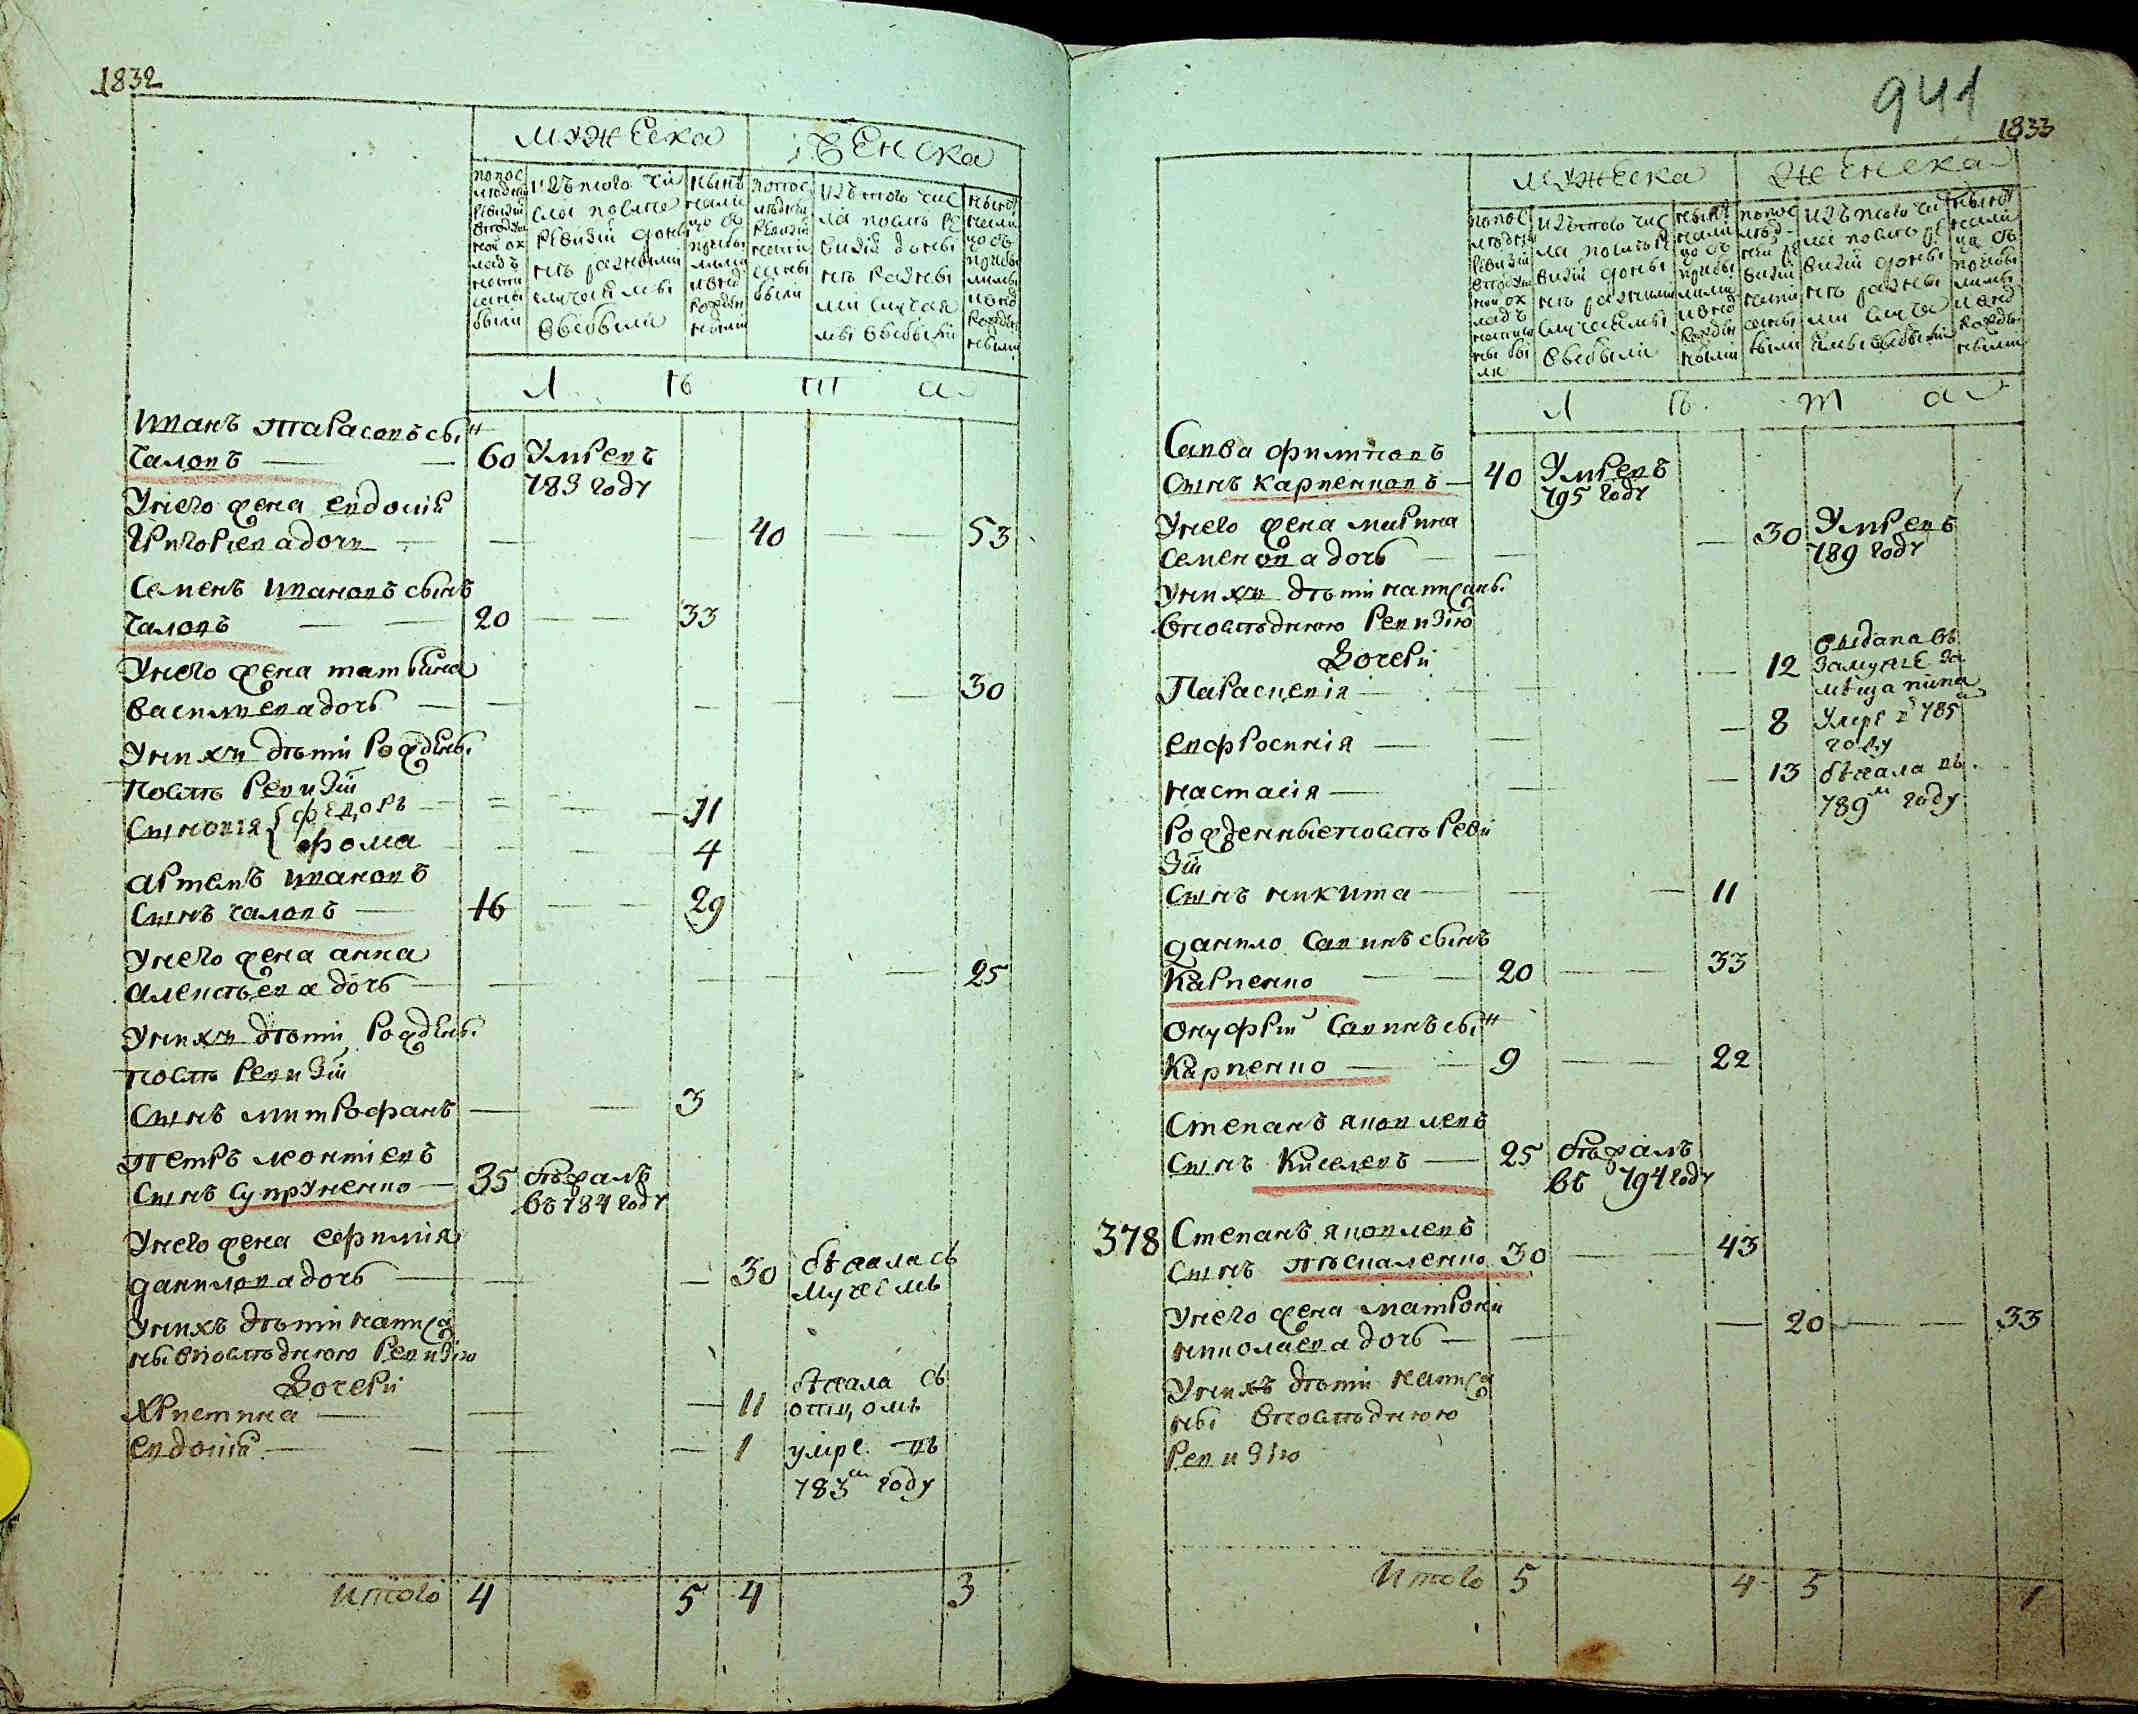 1832
мужеска
женска
попос
ледней
ревизии
вподуш
ной ок
ладъ
написа
ны
были
изъ того чи
сла после
ревизии доны
нѣ разными
случаями
выбыли
нынѣ
нали
цо съ
прибы
лыми
и вно
рожден
ными
попос
ледней
ревизии
написа
ны
были
изъ того чис
ла послѣ ре
визии доны
нѣ разны
ми случая
ми выбыли
нынѣ
нали
цо съ
прибы
лыми
и вно
рожден
ными
Л ѣ т а
Иванъ Тарасовъ сынъ
Чаловъ 60 Умревъ
783 году
У него жена Евдокия
Григориева дочь 40 53
Семенъ Ивановъ сынъ
Чаловъ 20 33
У него жена татьяна
васильева дочь 30
У них дѣти рожденны
послѣ ревизии
Сыновя { федоръ 11
фома 4
Артемъ Ивановъ
Сынъ Чаловъ 16 29
У него жена анна
алексѣева дочь 25
У них дѣти рожденны
послѣ ревизии
Сынъ митрофанъ 3
Петръ леонтиевъ
Сынъ Супруненко 35 бѣжалъ
въ 784 году
У него жена Ефимия
данилова дочь 30 бѣжала съ
мужемъ
У нихъ дѣти написа
ны впослѣднюю ревизию
Дочери
Христина 11 бѣжала съ
отцомъ
Евдокия 1 умре въ
783м году
Итого 4 5 4 3
941
1833
мужеска
женска
попос
ледней
ревизии
вподуш
ной ок
ладъ
написа
ны бы
ли
изъ того чис
ла послѣ ре
визии доны
нѣ разными
случаями
выбыли
нынѣ
нали
цо съ
прибы
лыми
и вно
рожден
ными
попос
лѣд
ней ре
визии
написа
ны
были
изъ того чи
сла послѣ ре
визии доны
нѣ разны
ми случа
ями выбыли
нынѣ
нали
цо съ
прибы
лыми
и вно
рожден
ными
Л ѣ т а
Савва филиповъ
Сынъ Карпенковъ 40 Умревъ
795 году
У него жена марина
Семенова дочь 30 Умревъ
789 году
У них дѣти написаны
впослѣднюю ревизию
Дочери
Параскевия 12 выдана въ
замуже за
мещанина
Евфросиния 8 умре в 785м
году
настасия 13 бѣжала въ
789м году
Рожденные послѣ реви
зии
Сынъ никита 11
данило Савинъ сынъ
Карпенко 20 33
Онуфрий Савинъ сынъ
Карпенко 9 22
Степанъ яковлевъ
Сынъ Киселевъ 25 бѣжалъ
въ 794 году
378 Степанъ яковлевъ
Сынъ Пѣскаленко 30 43
У него жена матрона
николаева дочь 20 33
У нихъ дѣти написа
ны впослѣднюю
ревизию
Итого 5 4 5 1